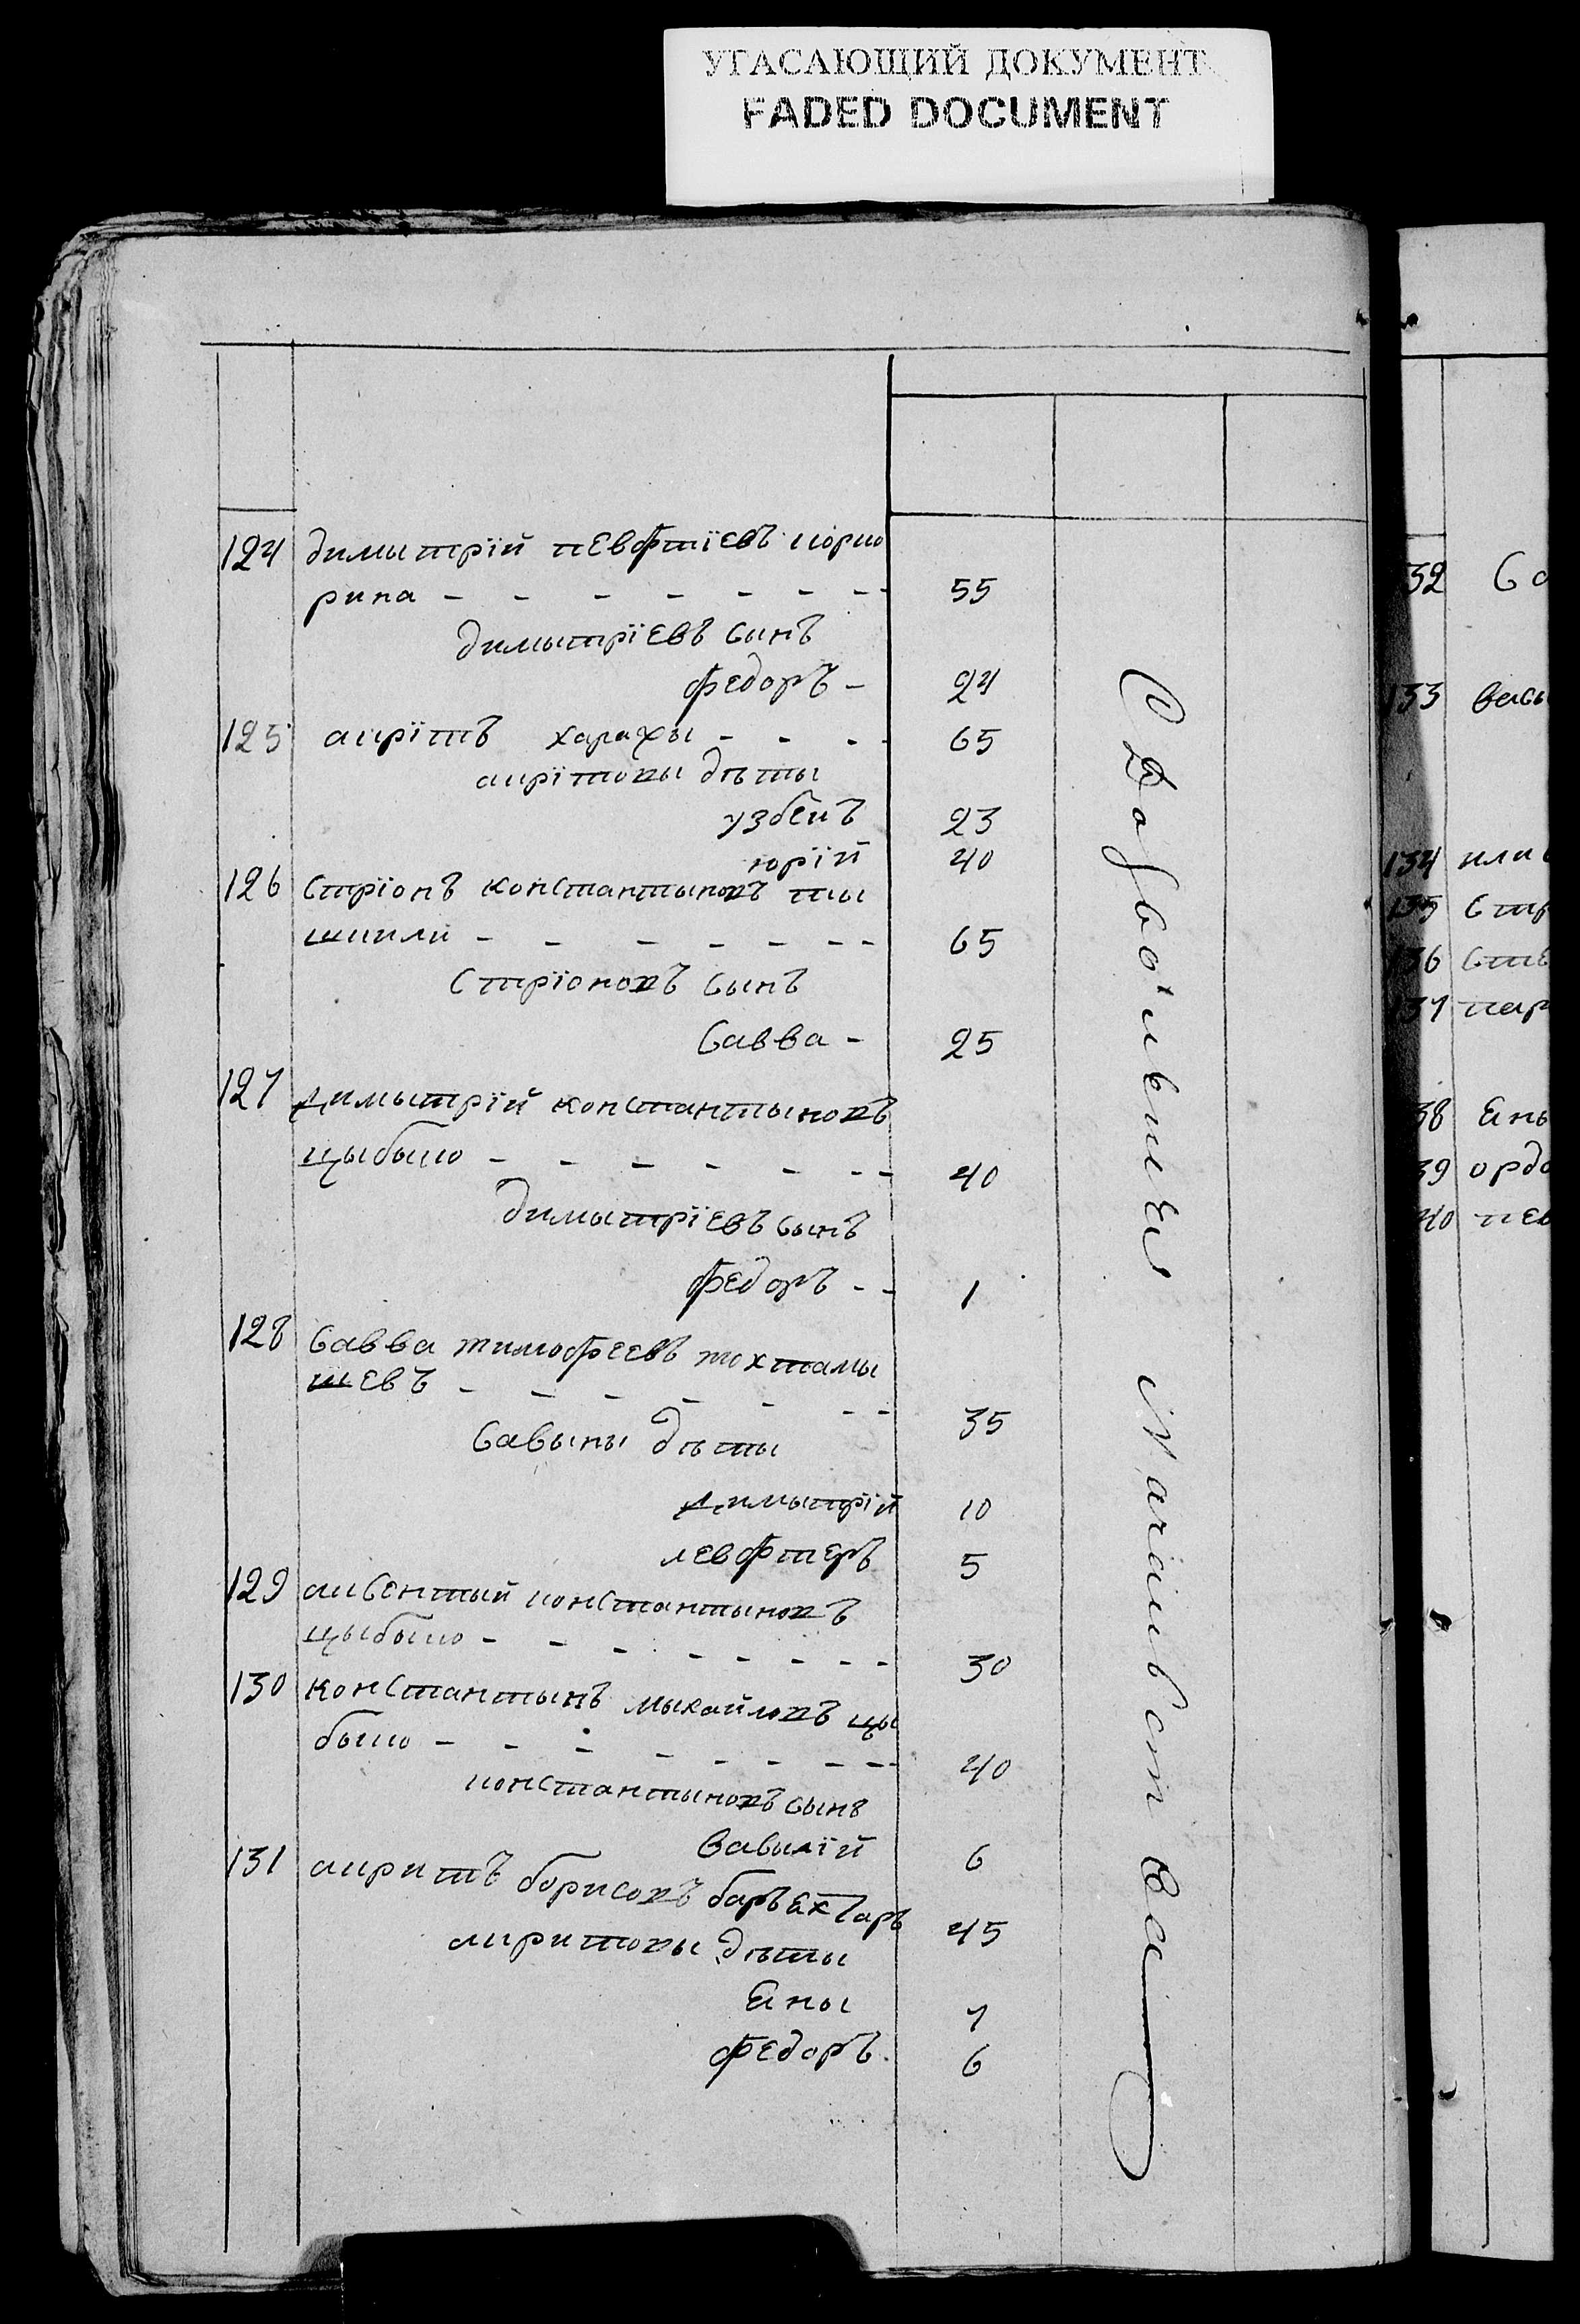 УГАСАЮЩИЙ ДОКУМЕНТ
FADED DOCUMENT
124 димытрїй левфтїевъ коріо
рина - - - - - - - 55
димытрїевъ сынъ
федоръ - 24
125 акрїтъ харахы - - - - 65
акрїтовы дѣты
узбекъ 23
юрїй 40
126 Стрїонъ константыновъ ты
шкили - - - - - - - 65
Стрїоновъ сынъ
Савва - 25
127 димытрїй константыновъ
цыбыко - - - - - - - 40
димытрїевъ сынъ
федоръ - - 1
128 Савва тимофеевъ тохтамы
шевъ - - - - - - - 35
Савыны дѣты
димытрїй 10
левфтеръ 5
129 авсентый константыновъ
цыбыко - - - - - - - - 30
130 константынъ мыхайловъ цы
быко - - - - - - - - 40
константыновъ сынъ
Вавылїй 6
131 акритъ борисовъ 45
акритовы дѣты
Яны 7
федоръ. 6
132
133 васы
134
135 Стр
136 Сте
137 пар
138
139 ордо
140